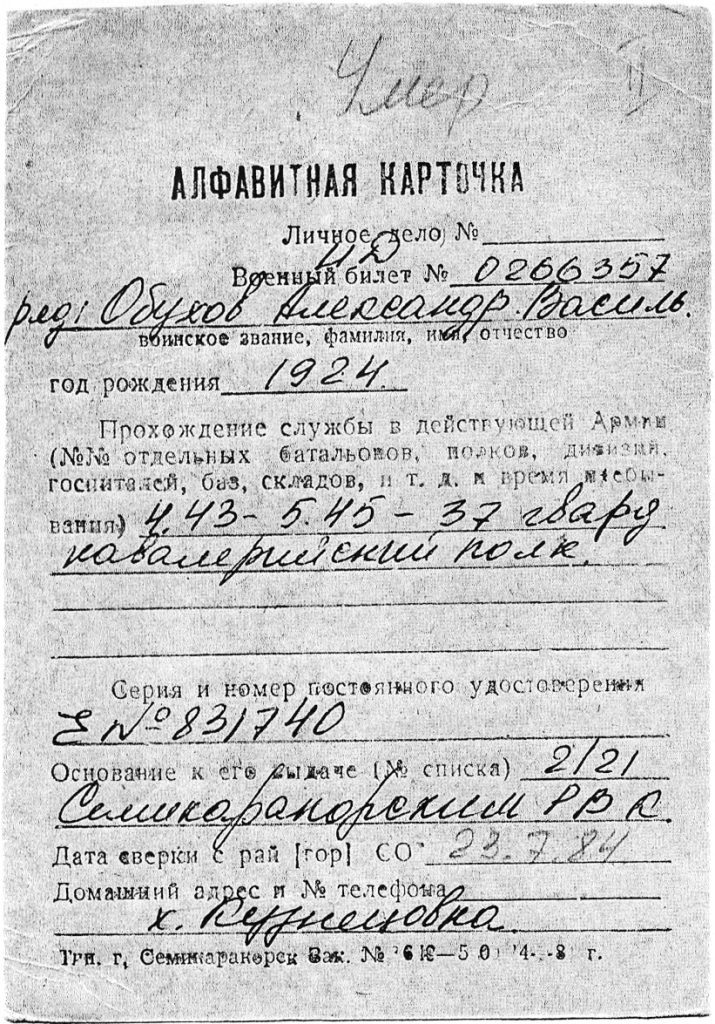 Умер
II
АЛФАВИТНАЯ КАРТОЧКА
Личное дело №
Военный билет № НД 0266357
ряд: Обухов Александр Василь.
воинское звание, фамилия, имя, отчество
год рождения 1924
Прохождение службы в действующей Армии
(№№ отдельных батальонов, полков, дивизий,
госпиталей, баз, складов, и т. д. и время пребы-
вания) 4.43 - 5.45 - 37 гвард
кавалерийский полк.
Серия и номер постоянного удостоверения
Е № 831740
Основание к его выдаче (№ списка) 2/21
Семикаракорским РВК.
Дата сверки с рай [гор] СО 23.7.84
Домашний адрес и № телефона
х. Кузнецовка
г. Семикаракорск Зак. №